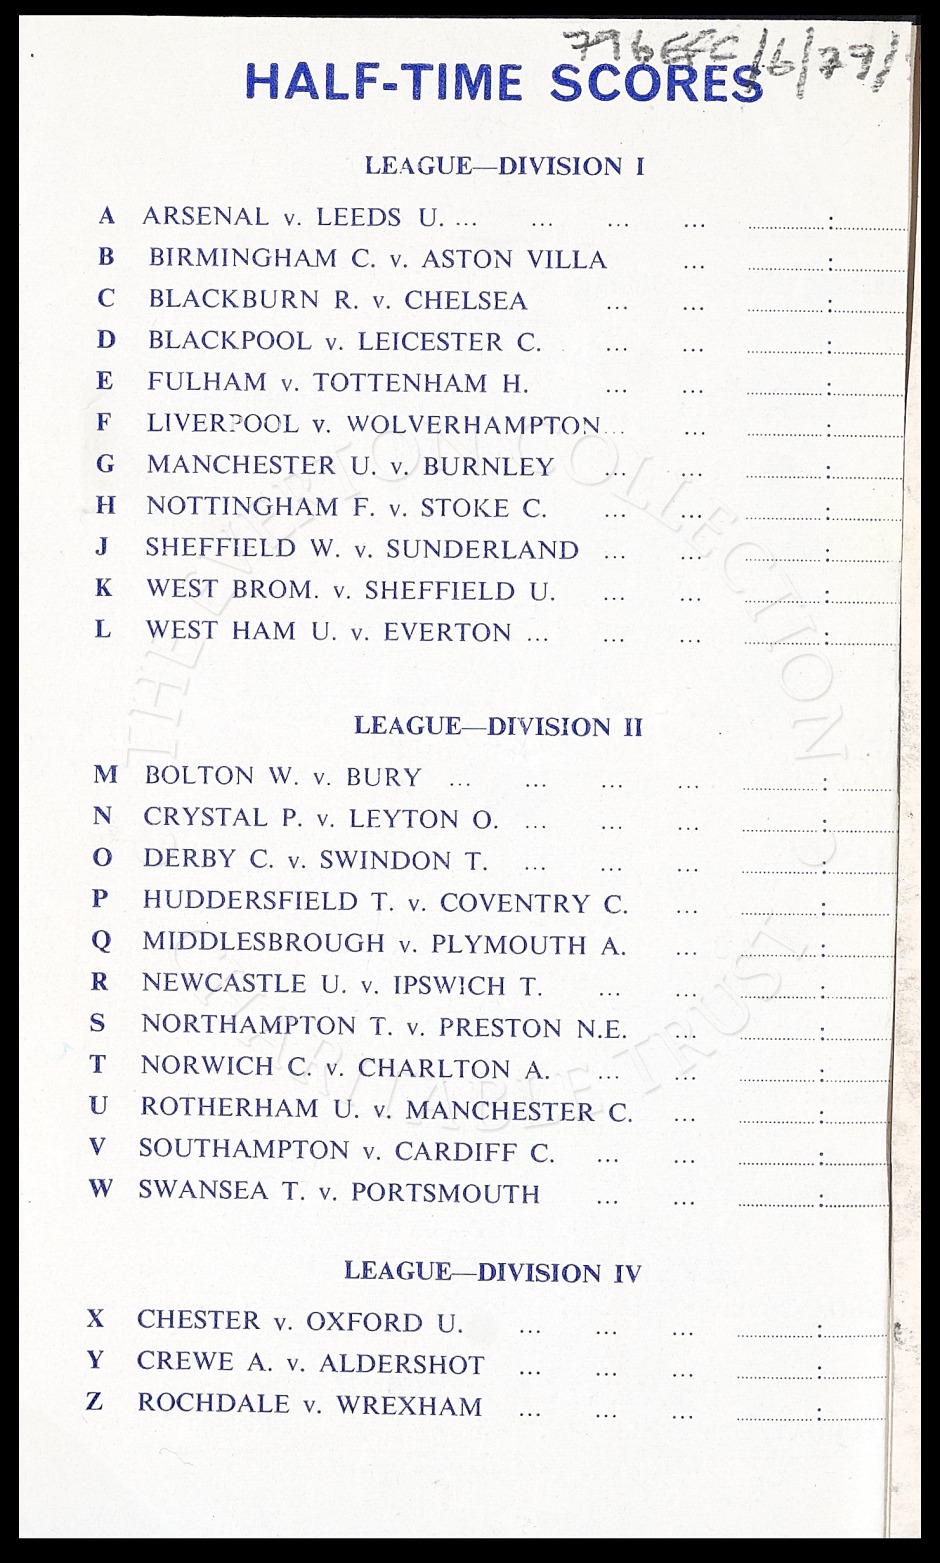 796 EFC/6/79/
HALF-TIME SCORES
LEAGUE—DIVISION I
A ARSENAL v. LEEDS U. ... ... ... ... ............:............
B BIRMINGHAM C. v. ASTON VILLA ... ............:............
C BLACKBURN R. v. CHELSEA ... ... ............:............
D BLACKPOOL v. LEICESTER C. ... ... ............:............
E FULHAM v. TOTTENHAM H. ... ... ............:............
F LIVERPOOL v. WOLVERHAMPTON... ... ............:............
G MANCHESTER U. v. BURNLEY ... ... ............:............
H NOTTINGHAM F. v. STOKE C. ... ... ............:............
J SHEFFIELD W. v. SUNDERLAND ... ... ............:............
K WEST BROM. v. SHEFFIELD U. ... ... ............:............
L WEST HAM U. v. EVERTON ... ... ... ............:............
LEAGUE—DIVISION II
M BOLTON W. v. BURY ... ... ... ... ............:............
N CRYSTAL P. v. LEYTON O. ... ... ... ............:............
O DERBY C. v. SWINDON T. ... ... ... ............:............
P HUDDERSFIELD T. v. COVENTRY C. ... ............:............
Q MIDDLESBROUGH v. PLYMOUTH A. ... ............:............
R NEWCASTLE U. v. IPSWICH T. ... ... ............:............
S NORTHAMPTON T. v. PRESTON N.E. ... ............:............
T NORWICH C. v. CHARLTON A. ... ... ............:............
U ROTHERHAM U. v. MANCHESTER C. ... ............:............
V SOUTHAMPTON v. CARDIFF C. ... ... ............:............
W SWANSEA T. v. PORTSMOUTH ... ... ............:............
LEAGUE—DIVISION IV
X CHESTER v. OXFORD U. ... ... ... ............:............
Y CREWE A. v. ALDERSHOT ... ... ... ............:............
Z ROCHDALE v. WREXHAM ... ... ... ............:............
THE EVERTON COLLECTION
CHARITABLE TRUST